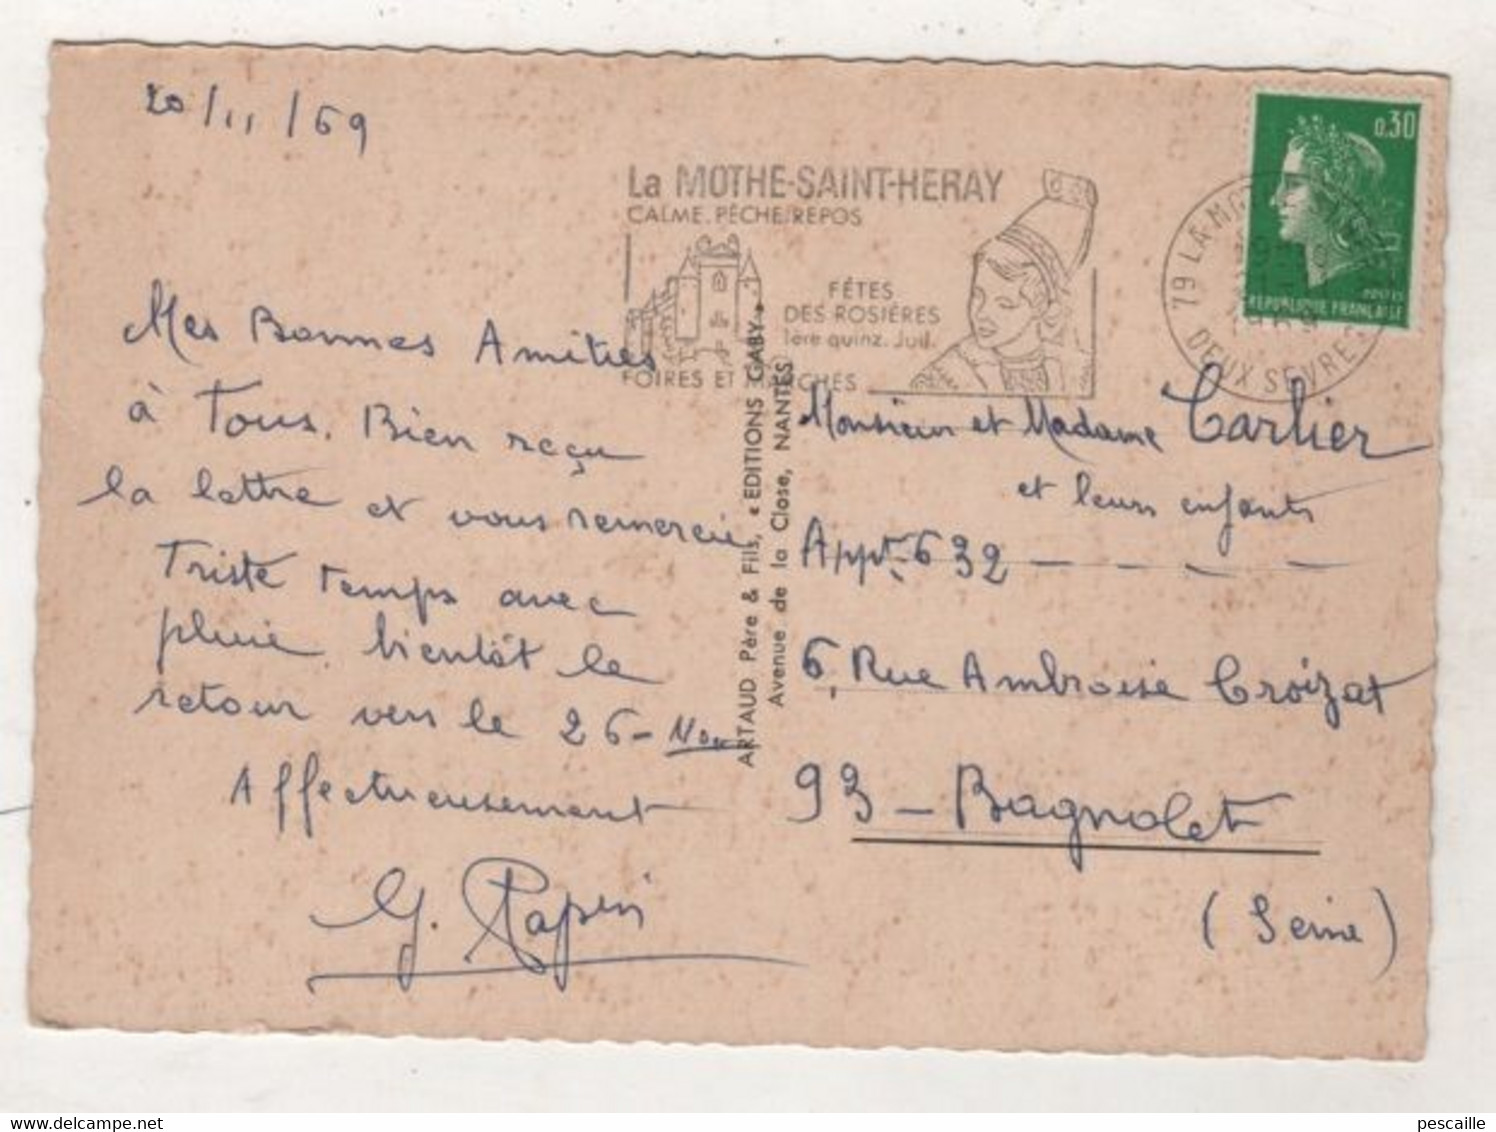 20/11/69
La MOTHE-SAINT-HERAY
CALME. PÊCHE. REPOS
FÊTES
DES ROSIÈRES
1ère quinz. Juil.
FOIRES ET MARCHÉS
79 LA-MO
DEUX SEVRES
0,30
POSTES
REPUBLIQUE FRANÇAISE
Mes Bonnes Amitiés
à Tous. Bien reçu
la lettre et vous remercie
Triste temps avec
pluie. bientôt le
retour vers le 26-Nov
Affectueusement
G. Papin
ARTAUD Père & Fils, « EDITIONS GABY »
Avenue de la Close, NANTES
Monsieur et Madame Carlier
et leurs enfants
Appt. 632 - - - -
6, Rue Ambroise Croizat
93 - Bagnolet
(Seine)
pescaille